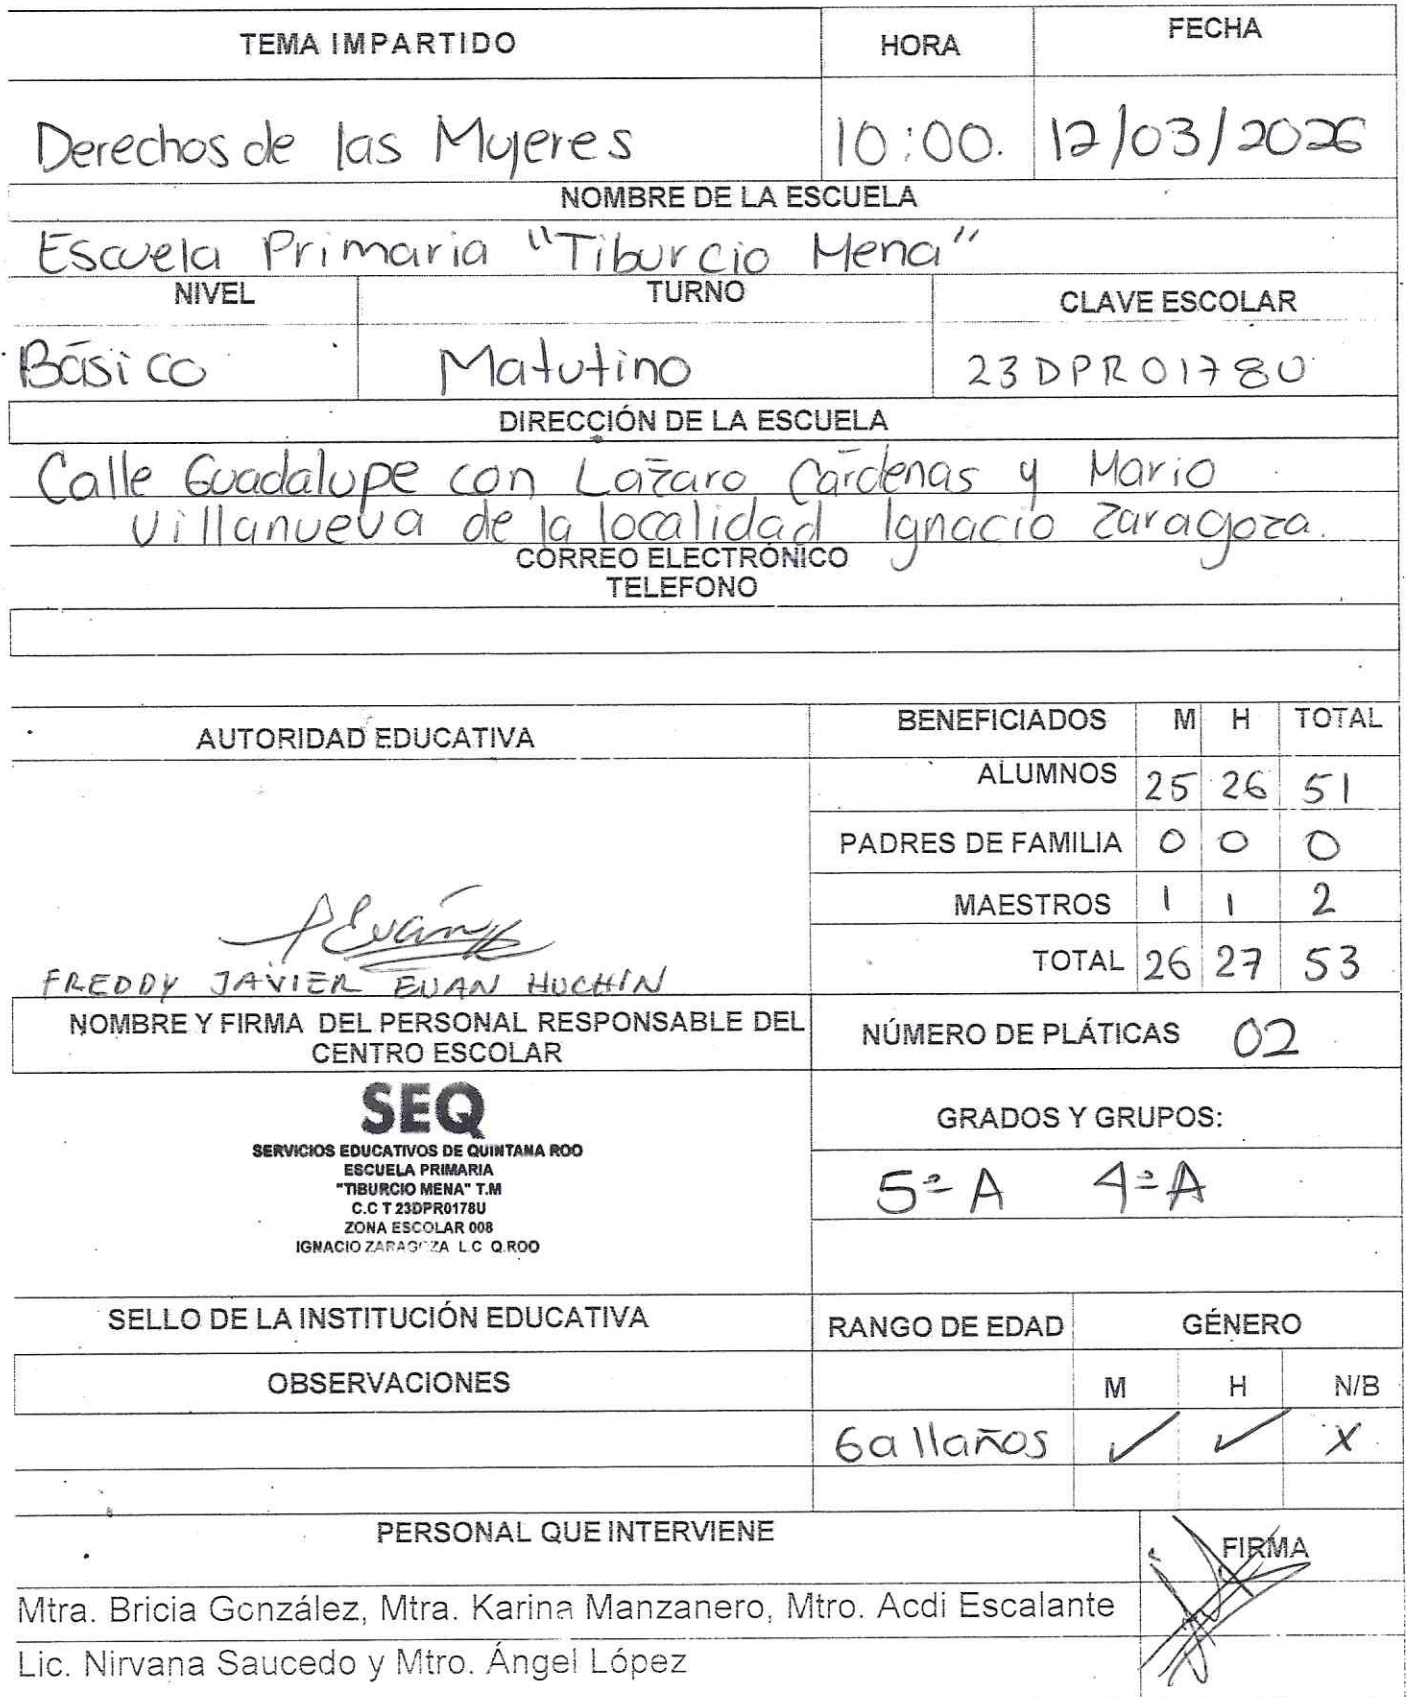 TEMA IMPARTIDO HORA FECHA
Derechos de las Mujeres 10:00. 12/03/2026
NOMBRE DE LA ESCUELA
Escuela Primaria "Tiburcio Mena"
NIVEL TURNO CLAVE ESCOLAR
Básico Matutino 23DPR0178U
DIRECCIÓN DE LA ESCUELA
Calle Guadalupe con Lázaro Cárdenas y Mario
Villanueva de la localidad Ignacio Zaragoza.
CORREO ELECTRÓNICO
TELEFONO
AUTORIDAD EDUCATIVA BENEFICIADOS M H TOTAL
ALUMNOS 25 26 51
PADRES DE FAMILIA 0 0 0
MAESTROS 1 1 2
TOTAL 26 27 53
FREDDY JAVIER EUAN HUCHIN
NOMBRE Y FIRMA DEL PERSONAL RESPONSABLE DEL
CENTRO ESCOLAR
NÚMERO DE PLÁTICAS 02
SEQ
SERVICIOS EDUCATIVOS DE QUINTANA ROO
ESCUELA PRIMARIA
"TIBURCIO MENA" T.M
C.C T 23DPR0178U
ZONA ESCOLAR 008
IGNACIO ZARAGOZA L.C Q.ROO
GRADOS Y GRUPOS:
5º A 4º A
SELLO DE LA INSTITUCIÓN EDUCATIVA RANGO DE EDAD GÉNERO
OBSERVACIONES M H N/B
6 a 11 años ✓ ✓ X
PERSONAL QUE INTERVIENE FIRMA
Mtra. Bricia González, Mtra. Karina Manzanero, Mtro. Acdi Escalante
Lic. Nirvana Saucedo y Mtro. Ángel López